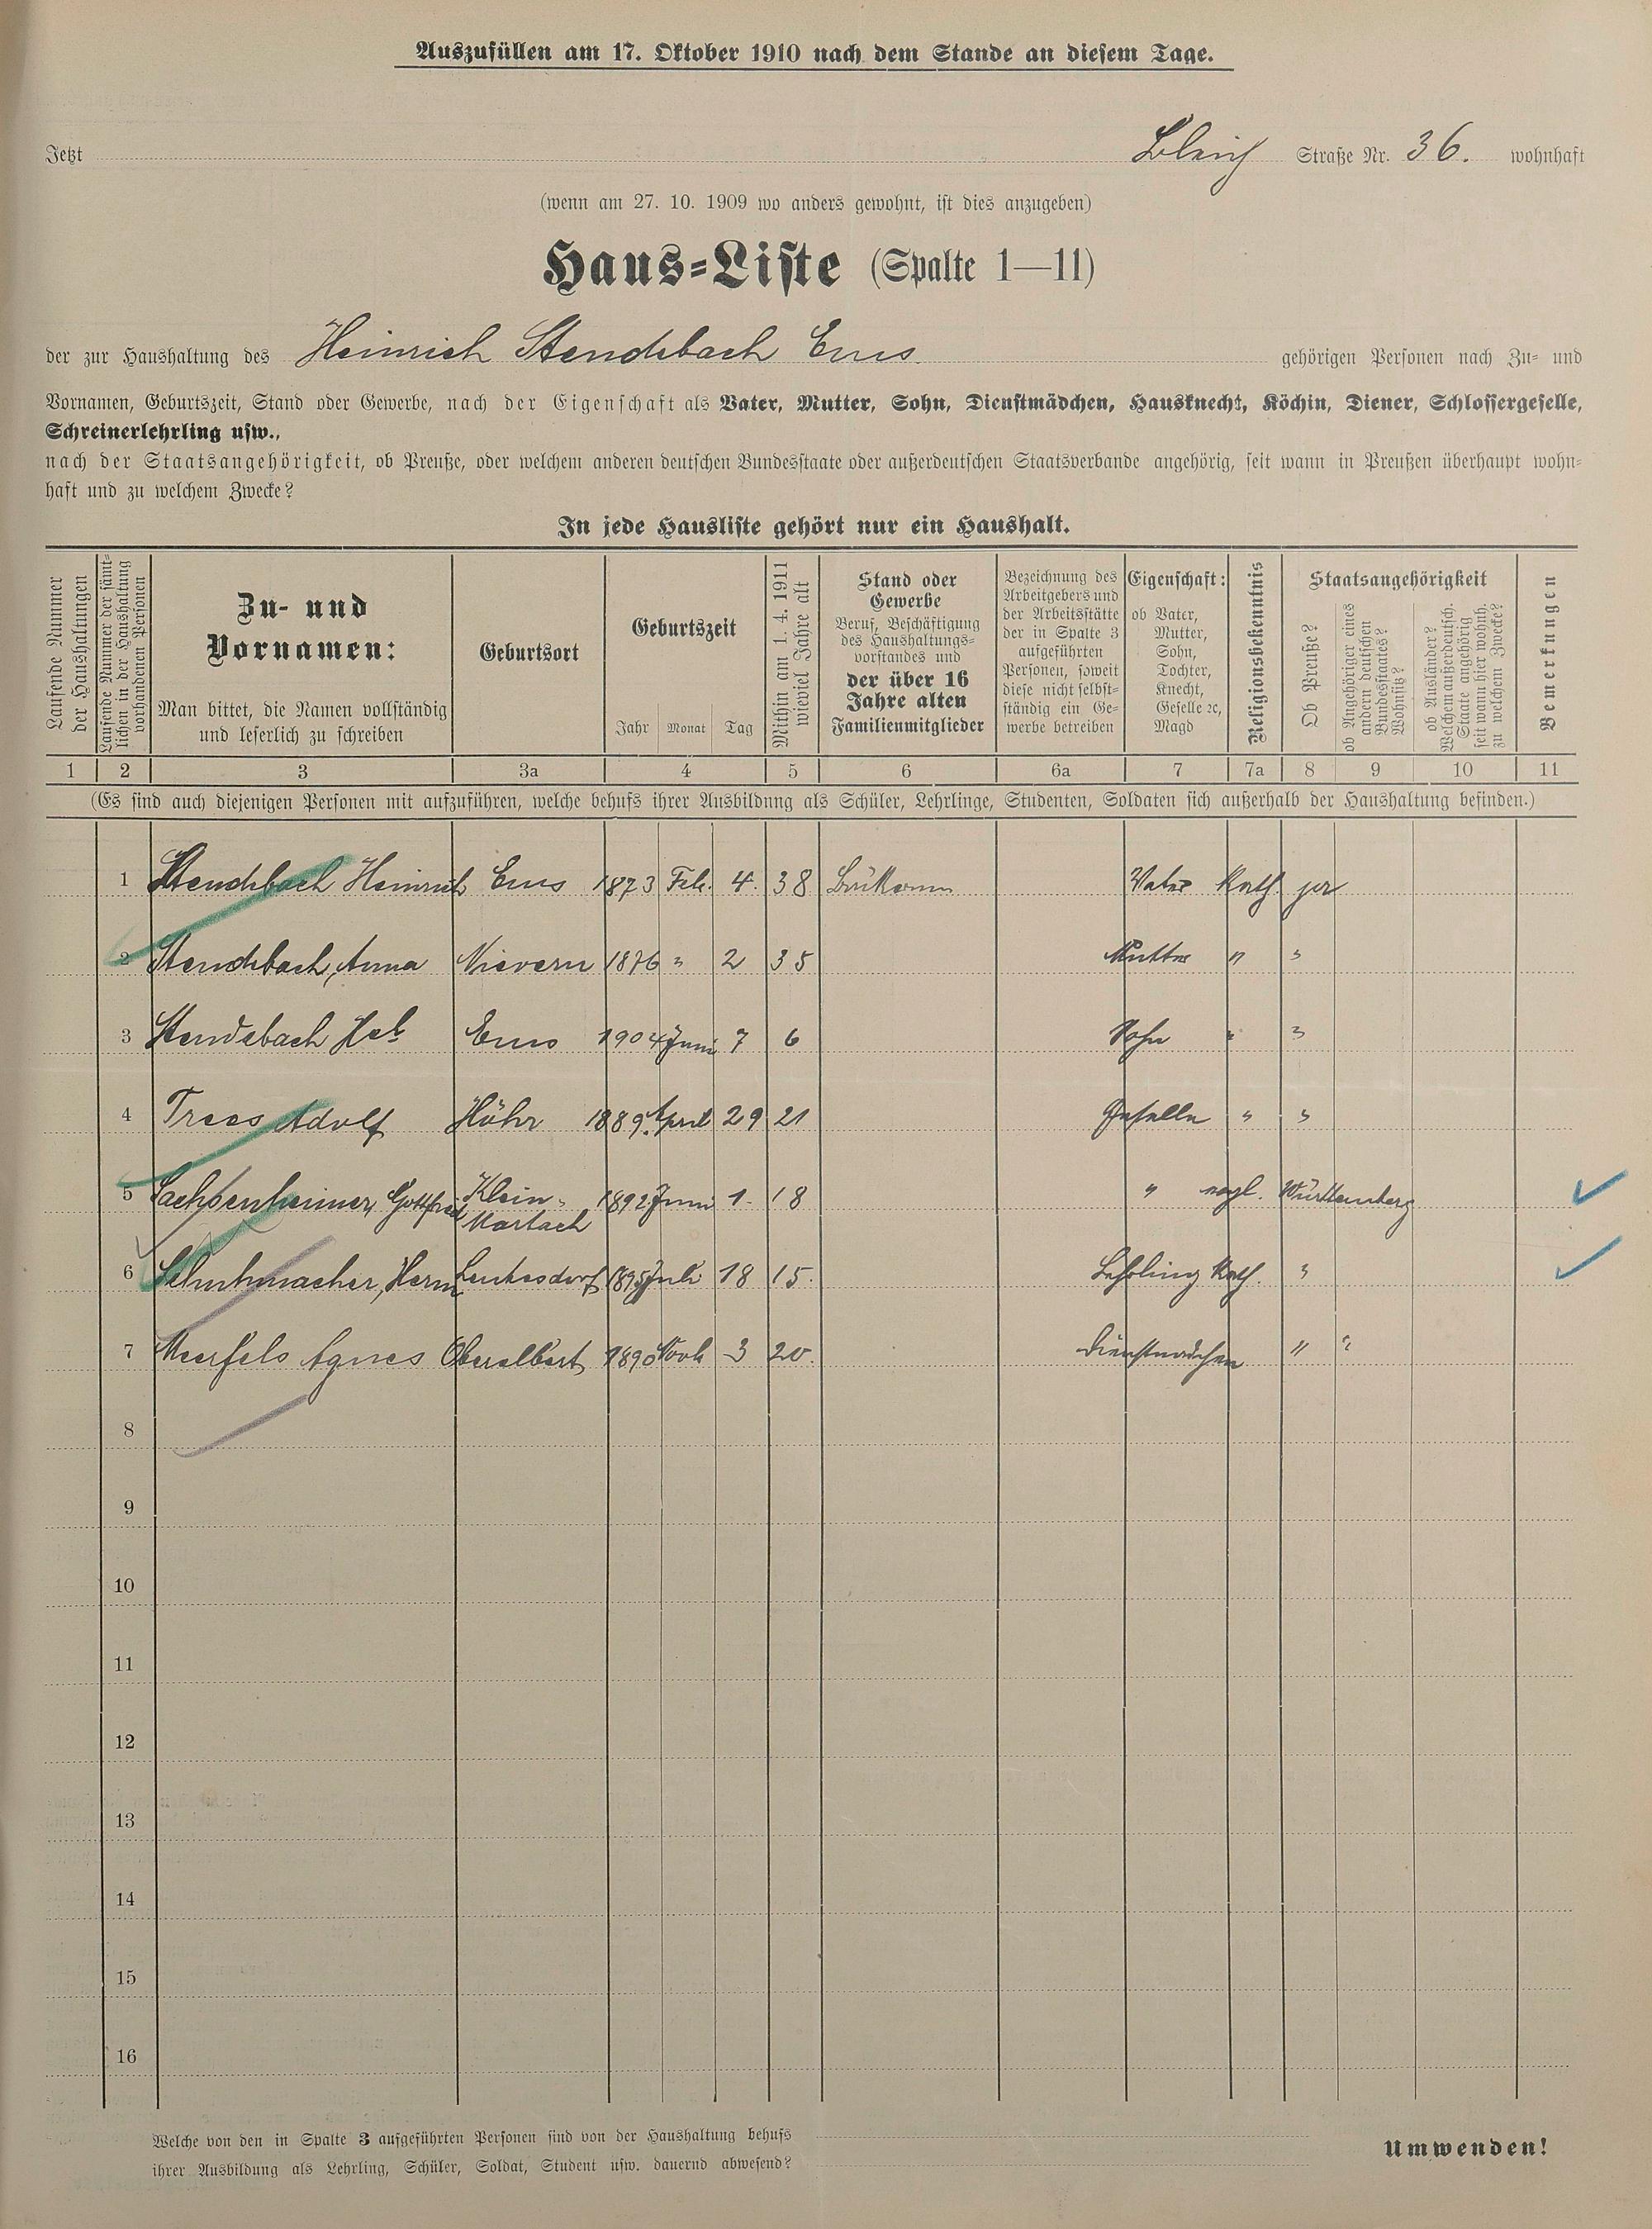 Auszufüllen am 17. Oktober 1910 nach dem Stande an diesem Tage.
Jetzt Bleich Straße Nr. 36. wohnhaft
(wenn am 27. 10. 1909 wo anders gewohnt, ist dies anzugeben)
Haus-Liste (Spalte 1—11)
der zur Haushaltung des Heinrich Stendebach Ems. gehörigen Personen nach Zu- und
Vornamen, Geburtszeit, Stand oder Gewerbe, nach der Eigenschaft als Vater, Mutter, Sohn, Dienstmädchen, Hausknecht, Köchin, Diener, Schlossergeselle,
Schreinerlehrling usw.,
nach der Staatsangehörigkeit, ob Preuße, oder welchem anderen deutschen Bundesstaate oder außerdeutschen Staatsverbande angehörig, seit wann in Preußen überhaupt wohn-
haft und zu welchem Zwecke?
In jede Hausliste gehört nur ein Haushalt.
Laufende Nummer
der Haushaltungen
Laufende Nummer der sämt-
lichen in der Haushaltung
vorhandenen Personen
Zu- und
Vornamen:
Man bittet, die Namen vollständig
und leserlich zu schreiben
Geburtsort
Geburtszeit
Jahr Monat Tag
Mithin am 1. 4. 1911
wieviel Jahre alt
Stand oder
Gewerbe
Beruf, Beschäftigung
des Haushaltungs-
vorstandes und
der über 16
Jahre alten
Familienmitglieder
Bezeichnung des
Arbeitgebers und
der Arbeitsstätte
der in Spalte 3
aufgeführten
Personen, soweit
diese nicht selbst-
ständig ein Ge-
werbe betreiben
Eigenschaft:
ob Vater,
Mutter,
Sohn,
Tochter,
Knecht,
Geselle ꝛc,
Magd
Religionsbekenntnis
Staatsangehörigkeit
Ob Preuße?
ob Angehöriger eines
andern deutschen
Bundesstaates?
Wohnsitz?
ob Ausländer?
Welchem außerdeutsch.
Staate angehörig
seit wann hier wohnh.
zu welchem Zwecke?
Bemerkungen
1 2 3 3a 4 5 6 6a 7 7a 8 9 10 11
(Es sind auch diejenigen Personen mit aufzuführen, welche behufs ihrer Ausbildung als Schüler, Lehrlinge, Studenten, Soldaten sich außerhalb der Haushaltung befinden.)
1 Stendebach Heinrich Ems 1873 Feb. 4. 38 Vater Kath. ja
2 Stendebach, Anna Nievern 1876 " 2 35 Mutter " "
3 Stendebach Ems 1904 Juni 7 6 Sohn " "
4 Trees Adolf Höhr 1889 April 29 21 Geselle " "
5 Sachsenheimer, Gottfried Klein- 1892 Juni 1. 18 " evgl. Württemberg
6 Schuhmacher, Herm Leutesdorf 1895 Juli 18 15. Lehrling Kath. "
7 Meurfels Agnes Oberelbert 1890 Novb 3 20. Dienstmädchen " "
8
9
10
11
12
13
14
15
16
Welche von den in Spalte 3 aufgeführten Personen sind von der Haushaltung behufs
ihrer Ausbildung als Lehrling, Schüler, Soldat, Student usw. dauernd abwesend?
Umwenden!